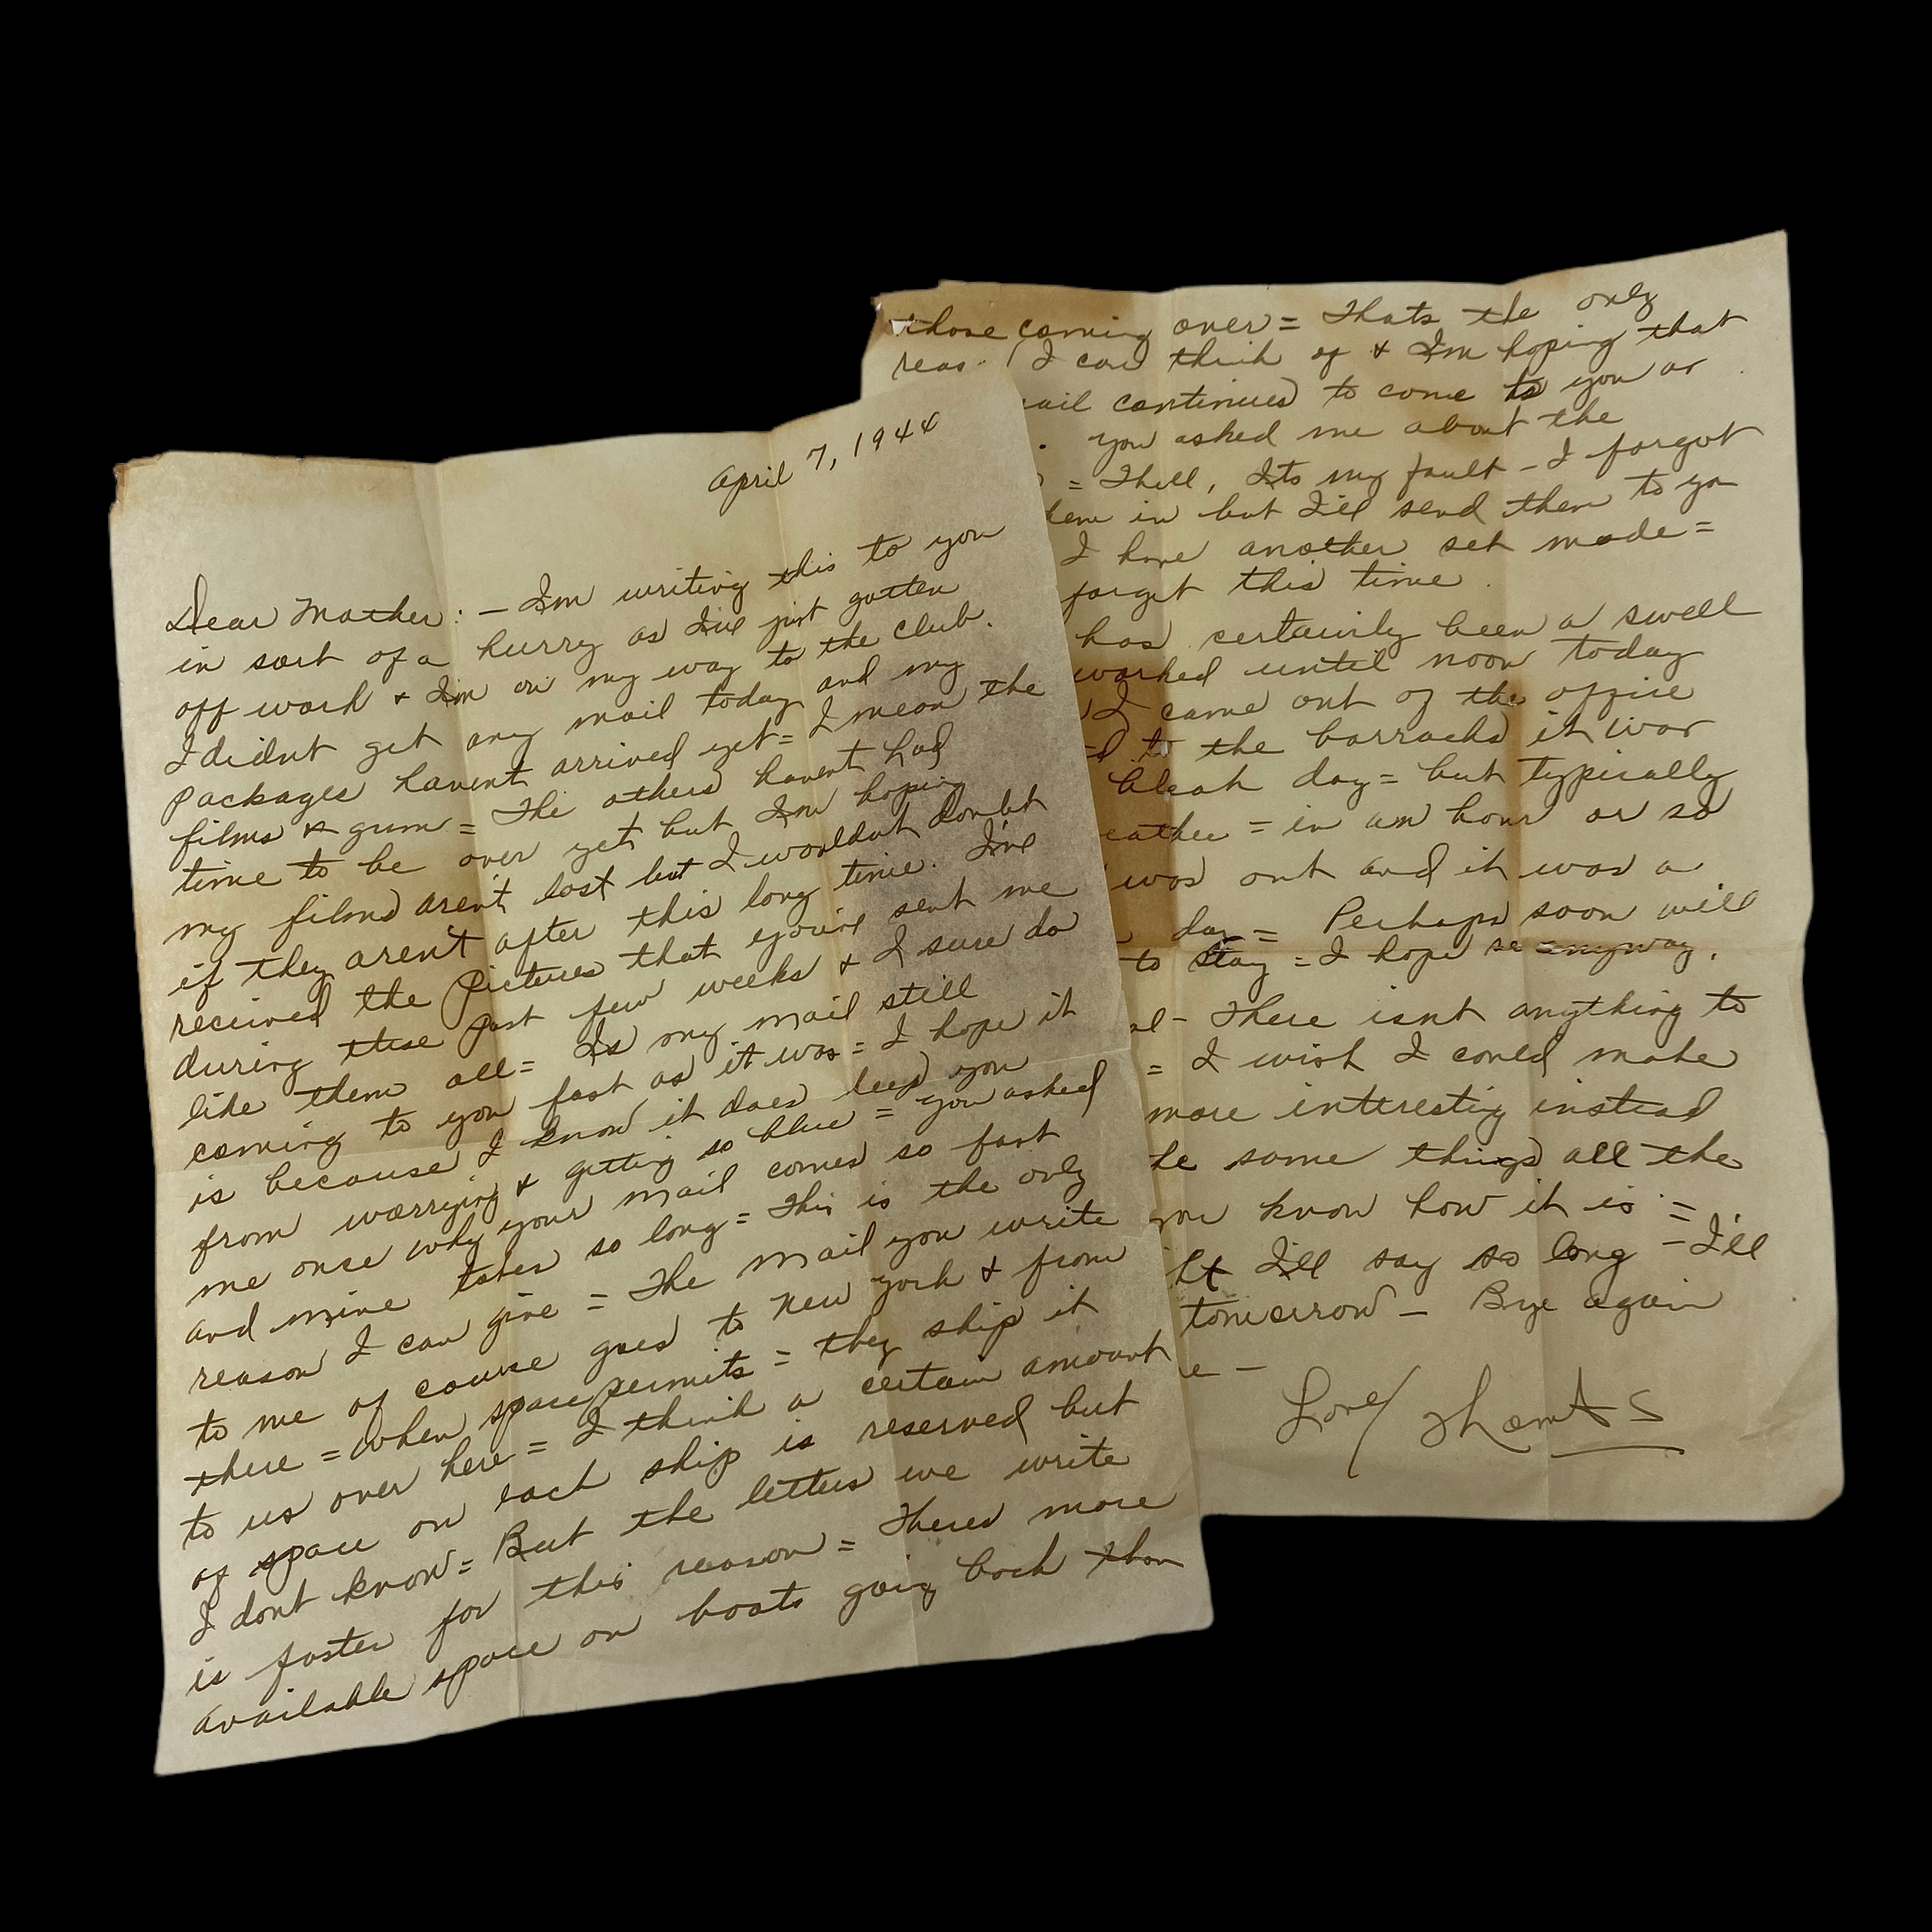 April 7, 1944
Dear Mother: — I'm writing this to you
in sort of a hurry as I've just gotten
off work & I'm on my way to the club.
I didnt get any mail today and my
packages havent arrived yet = I mean the
films & gum = The others havent had
time to be over yet but I'm hoping
my films aren't lost but I wouldnt doubt
if they aren't after this long time. I've
received the pictures that you've sent me
during these past few weeks & I sure do
like them all = Is my mail still
coming to you fast as it was = I hope it
is because I know it does keep you
from worrying & getting so blue = you asked
me once why your mail comes so fast
and mine takes so long = This is the only
reason I can give = The mail you write
to me of course goes to New York & from
there = when space permits = they ship it
to us over here = I think a certain amount
of space on each ship is reserved but
I dont know = But the letters we write
is faster for this reason = Theres more
available space on boats going back than
those coming over = Thats the only
I can think of & I'm hoping that
continues to come to you as
you asked me about the
= Well, Its my fault - I forgot
in but I'll send them to you
I have another set made =
forget this time.
has certainly been a swell
worked until noon today
I came out of the office
to the barracks it was
bleak day = but typically
= in an hour or so
was out and it was a
day = Perhaps soon will
to stay = I hope so anyway.
- There isnt anything to
= I wish I could make
more interesting instead
the same things all the
you know how it is =
I'll say so long - I'll
tomorrow — Bye again
—
Love